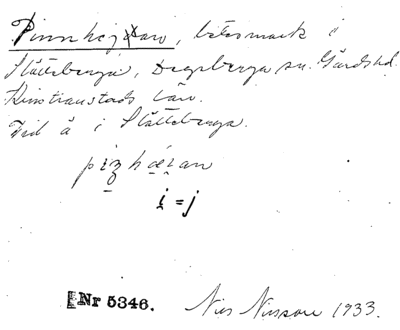 Pinnhejdan, betesmark i
Slätteberga, Degeberga sn. Gärds hd.
Kristianstads län.
Vid å i Slätteberga.
i̯ = j
Nr 5346. Nils Nilsson 1933.